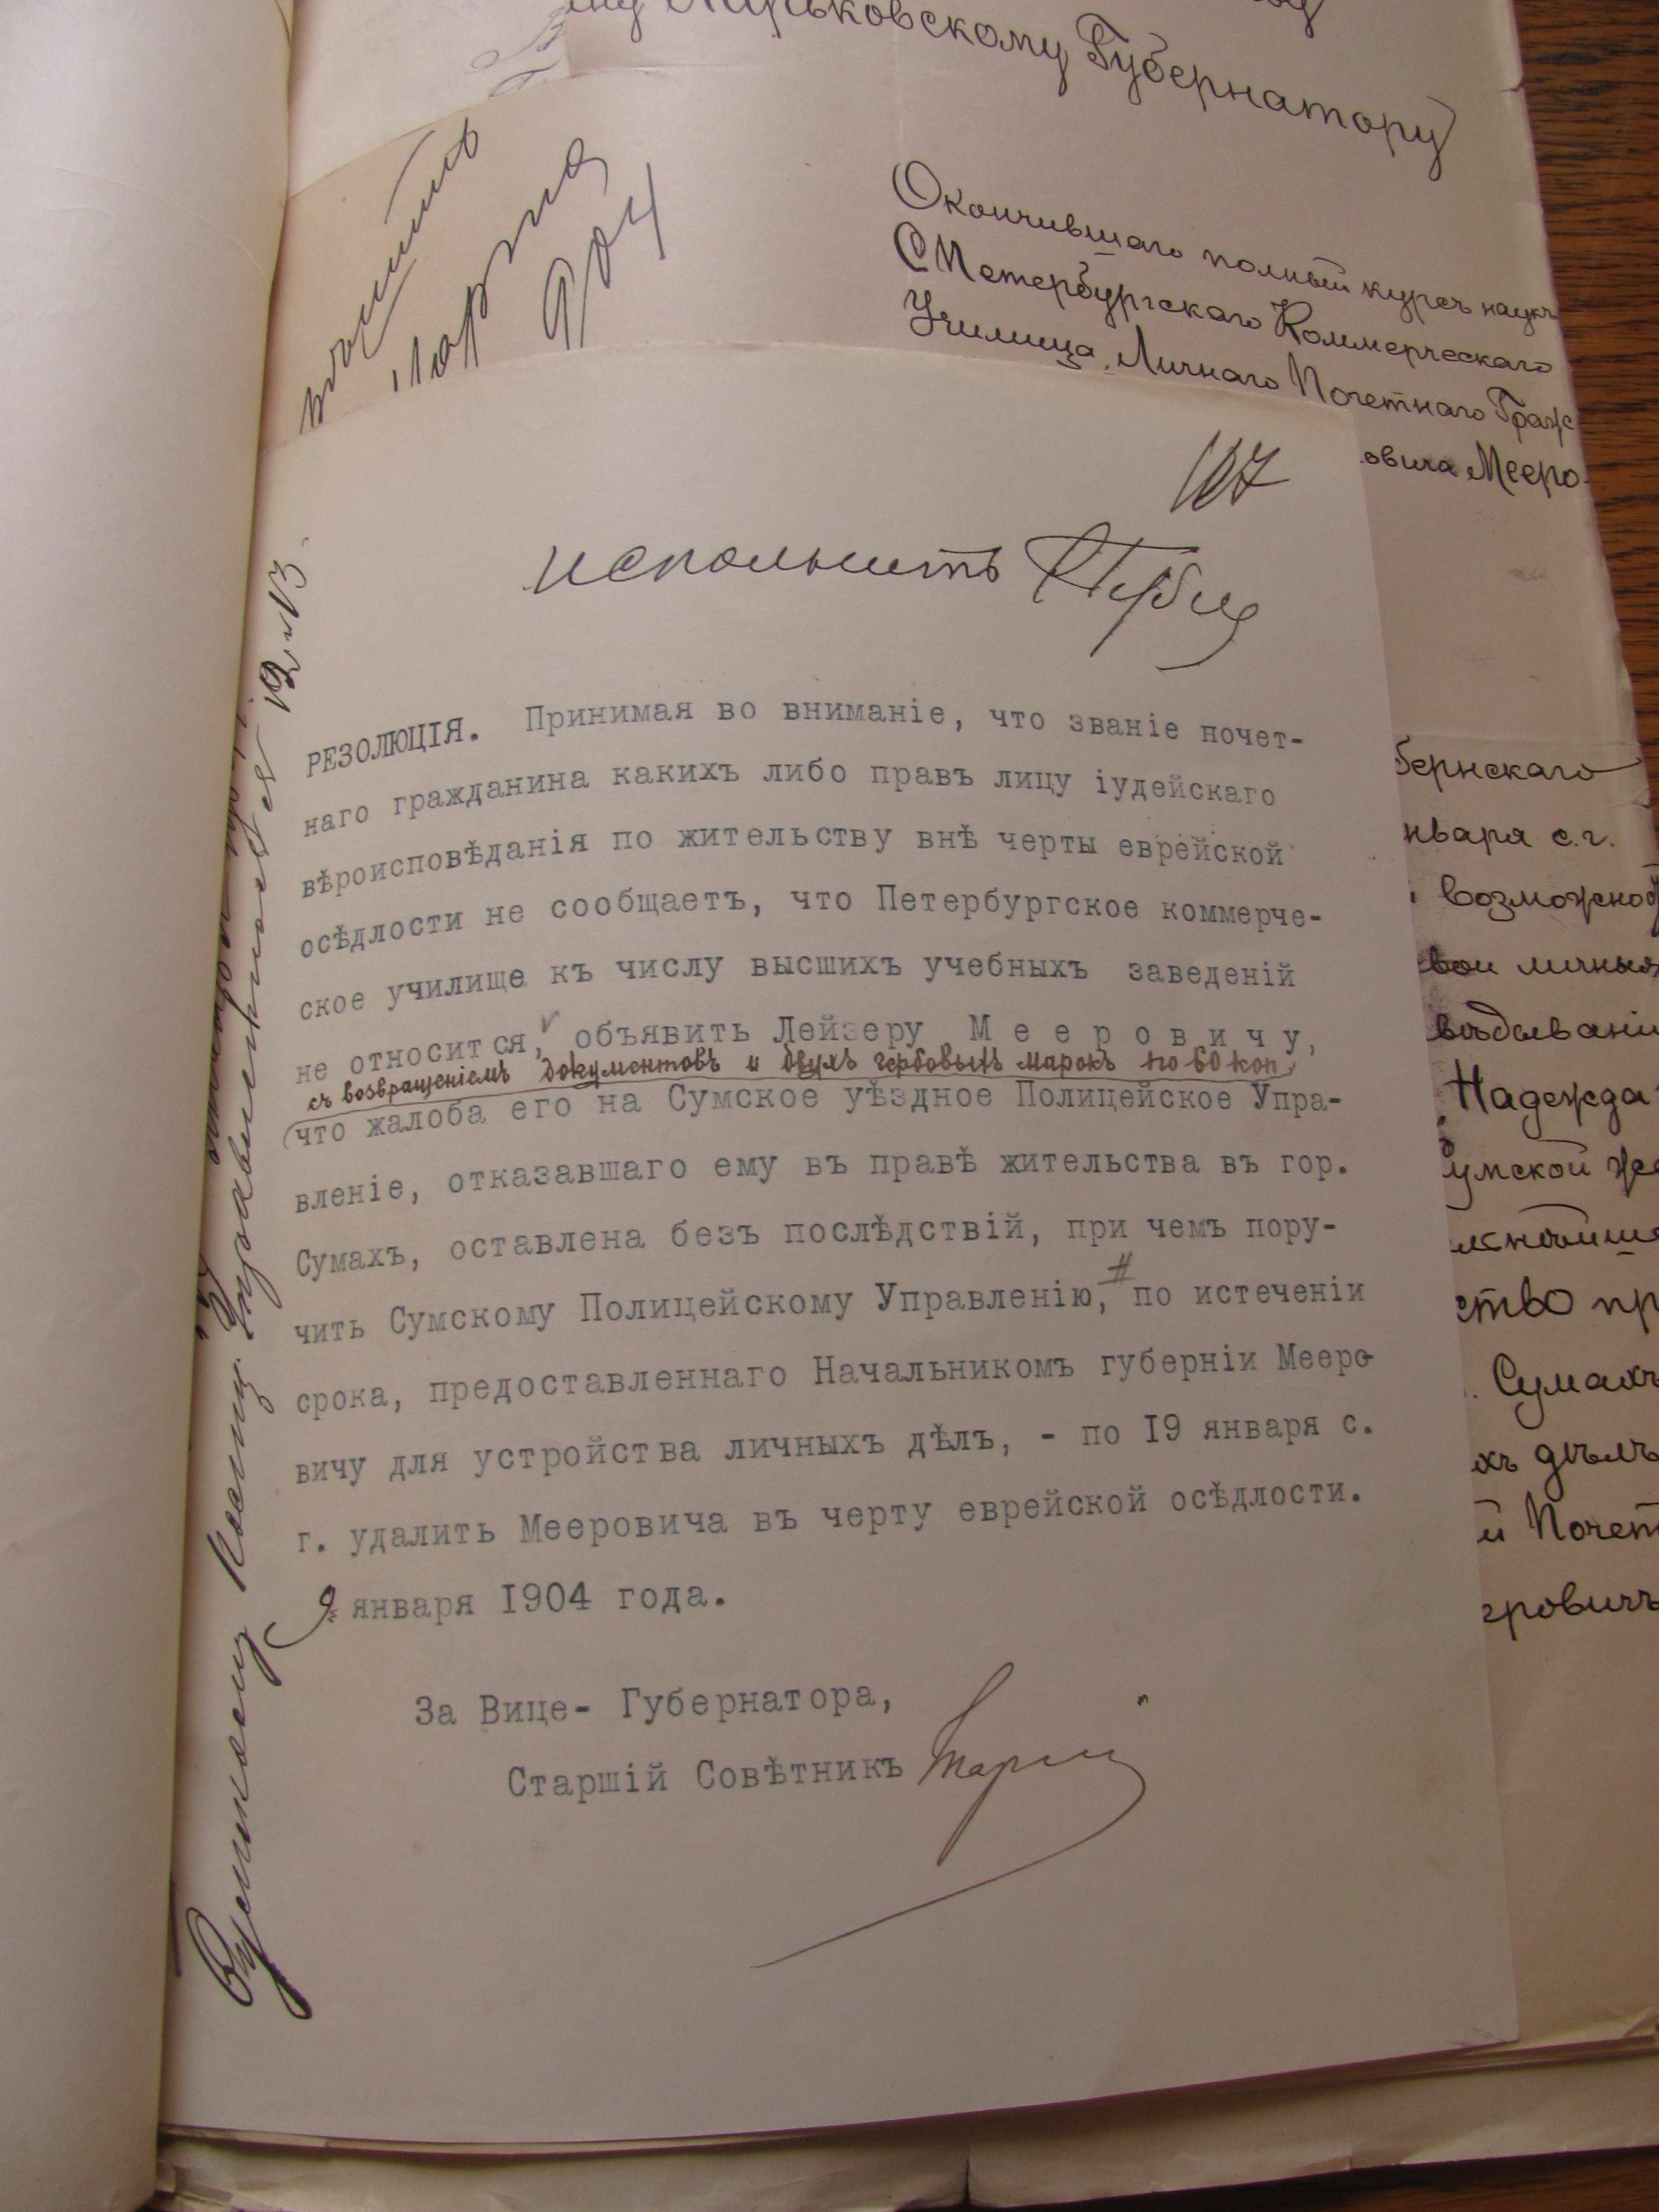 Харьковскому Губернатору
Окончившаго полный курсъ наукъ
СПетербургскаго Коммерческаго
Училища, Личнаго Почетнаго Граж
овича Мееро
904
107
исполнить
РЕЗОЛЮЦІЯ. Принимая во вниманіе, что званіе почет-
наго гражданина какихъ либо правъ лицу іудейскаго
вѣроисповѣданія по жительству внѣ черты еврейской
осѣдлости не сообщаетъ, что Петербургское коммерче-
ское училище къ числу высшихъ учебныхъ заведеній
не относится, объявить Лейзеру Мееровичу,
съ возвращеніемъ документовъ и двухъ гербовыхъ марокъ по 60 коп
что жалоба его на Сумское уѣздное Полицейское Упра-
вленіе, отказавшаго ему въ правѣ жительства въ гор.
Сумахъ, оставлена безъ послѣдствій, при чемъ пору-
чить Сумскому Полицейскому Управленію, # по истеченіи
срока, предоставленнаго Начальникомъ губерніи Мееро-
вичу для устройства личныхъ дѣлъ, - по 19 января с.
г. удалить Мееровича въ черту еврейской осѣдлости.
9 января 1904 года.
За Вице- Губернатора,
Старшій Совѣтникъ
бернскаго
нваря с.г.
возможной
вои личныя
Надежда
умской
ство пр
Сумахъ
хъ дѣлъ
й Почет
еровичъ